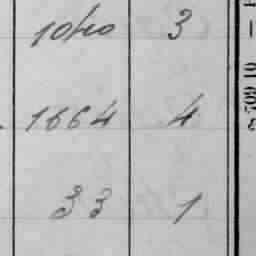 1040 3
1664 4
33 1